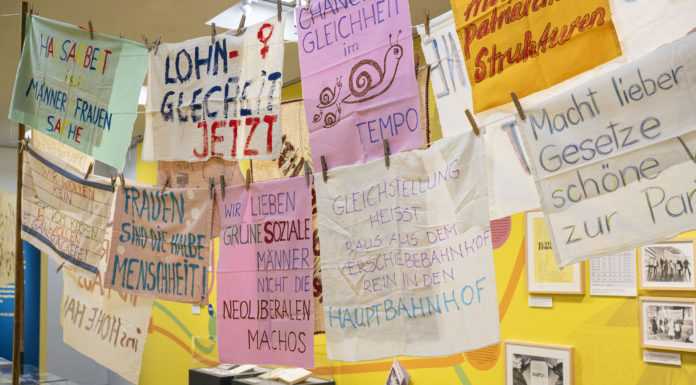 HAUSARBEIT
ist
MÄNNER+FRAUEN
SACHE
LOHN-
GLEICHEIT
JETZT
CHANCEN
GLEICHHEIT
im
TEMPO
Patriarchale
Strukturen
Macht lieber
Gesetze
schöne
zur Par
WIR WOLLEN
KEIN
FRAUEN
SIND DIE HALBE
MENSCHHEIT!
WIR LIEBEN
GRÜNE SOZIALE
MÄNNER
NICHT DIE
NEOLIBERALEN
MACHOS
GLEICHSTELLUNG
HEISST
RAUS AUS DEM
VERSCHIEBEBAHNHOF
REIN IN DEN
HAUPTBAHNHOF
ins HOHE HA